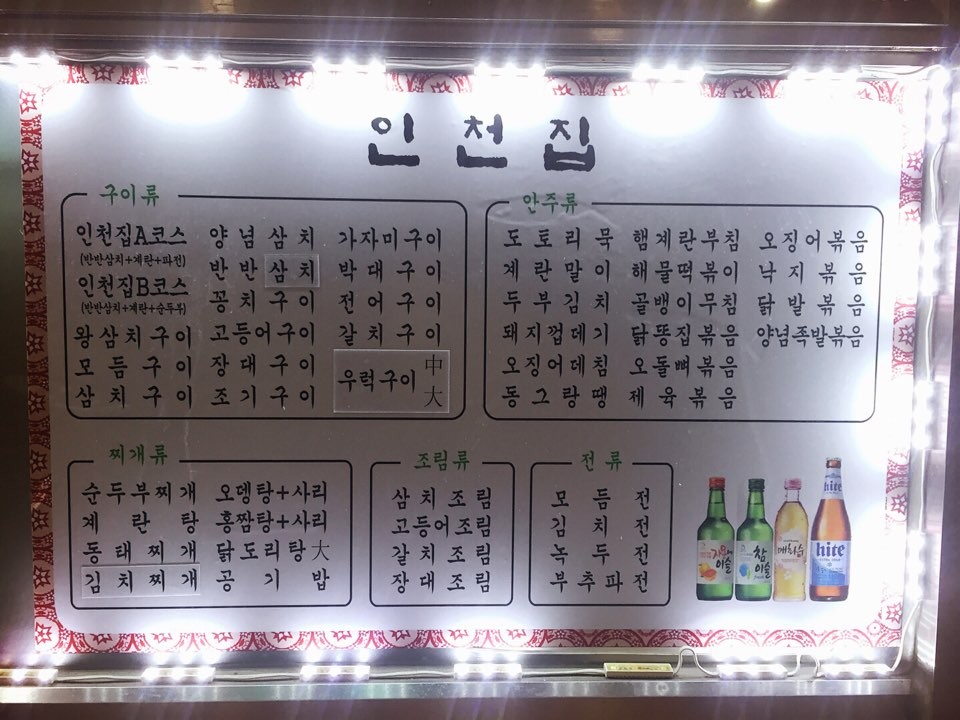 인천집
구이류
인천집A코스
(반반삼치+계란+파전)
인천집B코스
(반반삼치+계란+순두부)
왕삼치구이
모듬구이
삼치구이
양념삼치
반반삼치
꽁치구이
고등어구이
장대구이
조기구이
가자미구이
박대구이
전어구이
갈치구이
우럭구이 中
大
안주류
도토리묵
계란말이
두부김치
돼지껍데기
오징어데침
동그랑땡
햄계란부침
해물떡볶이
골뱅이무침
닭똥집볶음
오돌뼈볶음
제육볶음
오징어볶음
낙지볶음
닭발볶음
양념족발볶음
찌개류
순두부찌개
계란탕
동태찌개
김치찌개
오뎅탕+사리
홍짬탕+사리
닭도리탕大
공기밥
조림류
삼치조림
고등어조림
갈치조림
장대조림
전류
모듬전
김치전
녹두전
부추파전
자몽에
이슬
참
이슬
매화수
hite
hite